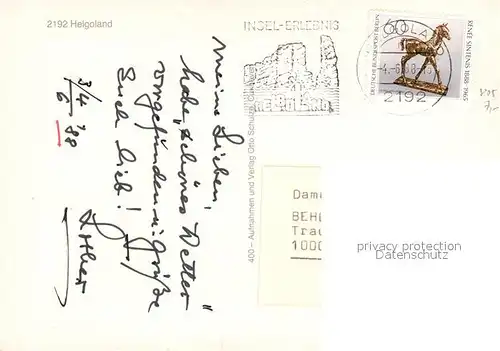 2192 Helgoland
3/4
6 '88
Meine Lieben,
habe „schönes Wetter"
vorgefunden u. grüße
Euch lieb!
Lothar
400 – Aufnahmen und Verlag Otto
INSEL-ERLEBNIS
HELGOLAND
GOLA
-4.-6.88-15
2192
60
DEUTSCHE BUNDESPOST BERLIN
RENÉE SINTENIS 1888-1965
7,-
Dame
BEHL
Trau
1000
privacy protection
Datenschutz